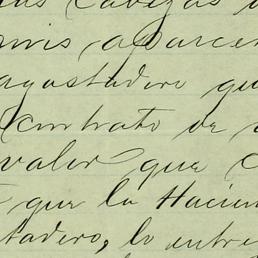 cabezas
aparcer
agostadero que
contrato de
valor que
que la Hacien
tadero, lo entre